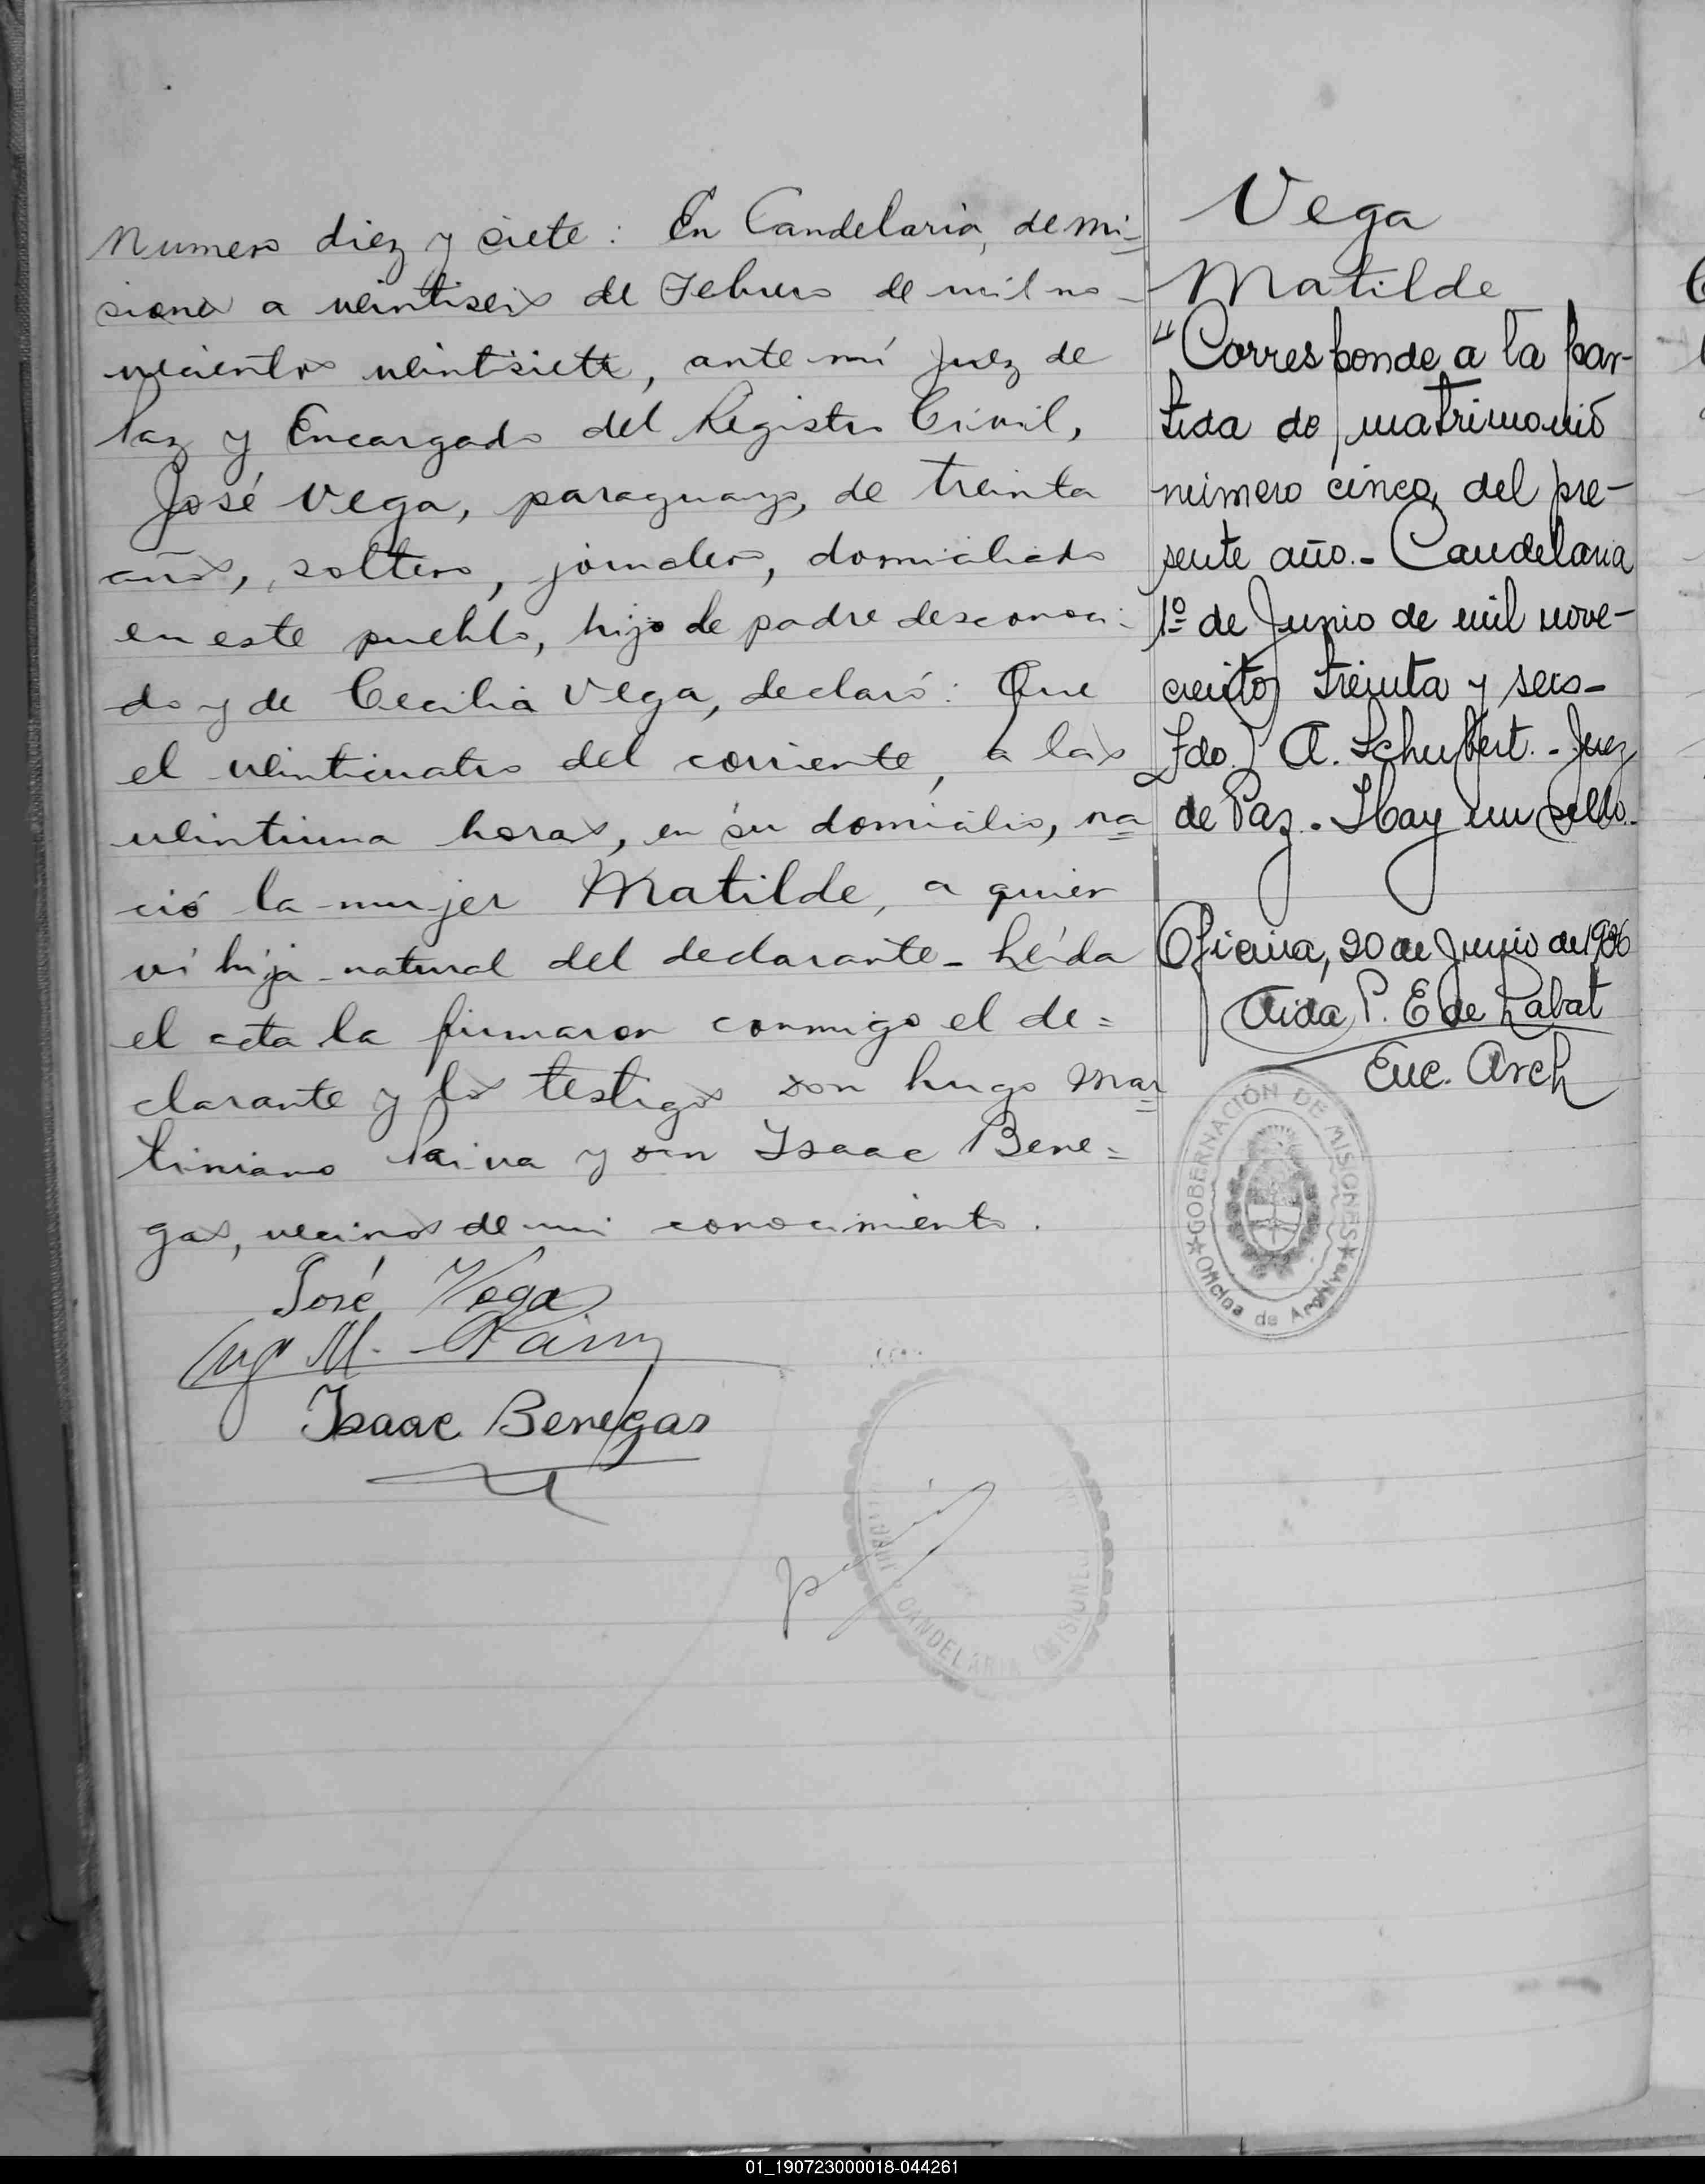 Numero diez y siete: En Candelaria, de mi-
siones a veintiseis de Febrero de mil no-
vecientos veintisiete, ante mí Juez de
Paz y Encargado del Registro Civil,
José Vega, paraguayo, de treinta
años, soltero, jornalero, domiciliado
en este pueblo, hijo de padre desconoci-
do y de Cecilia Vega, declaró: Que
el veinticuatro del corriente, a las
veintiuna horas, en su domicilio, na
ció la mujer Matilde, a quien
ví hija natural del declarante - Leída
el acta la firmaron conmigo el de=
clarante y los testigos don hugo Mar
tiniano Paiva y don Isaac Bene=
gas, vecinos de mi conocimiento.
José Vega
Hugo M. Paiva
Isaac Benegas
CANDELARIA (MISIONES)
Vega
Matilde
"Corresponde a la par-
tida de matrimonio
número cinco, del pre-
sente año.- Candelaria
1º de Junio de mil nove-
cientos treinta y seis-
Fdo.) A. Schubert.- Juez
de Paz. Hay un sello.
Oficina, 20 de Junio de 1936
Aida P. E de Labat
Enc. Arch
GOBERNACIÓN DE MISIONES
Oficina de Archivos
01_190723000018-044261